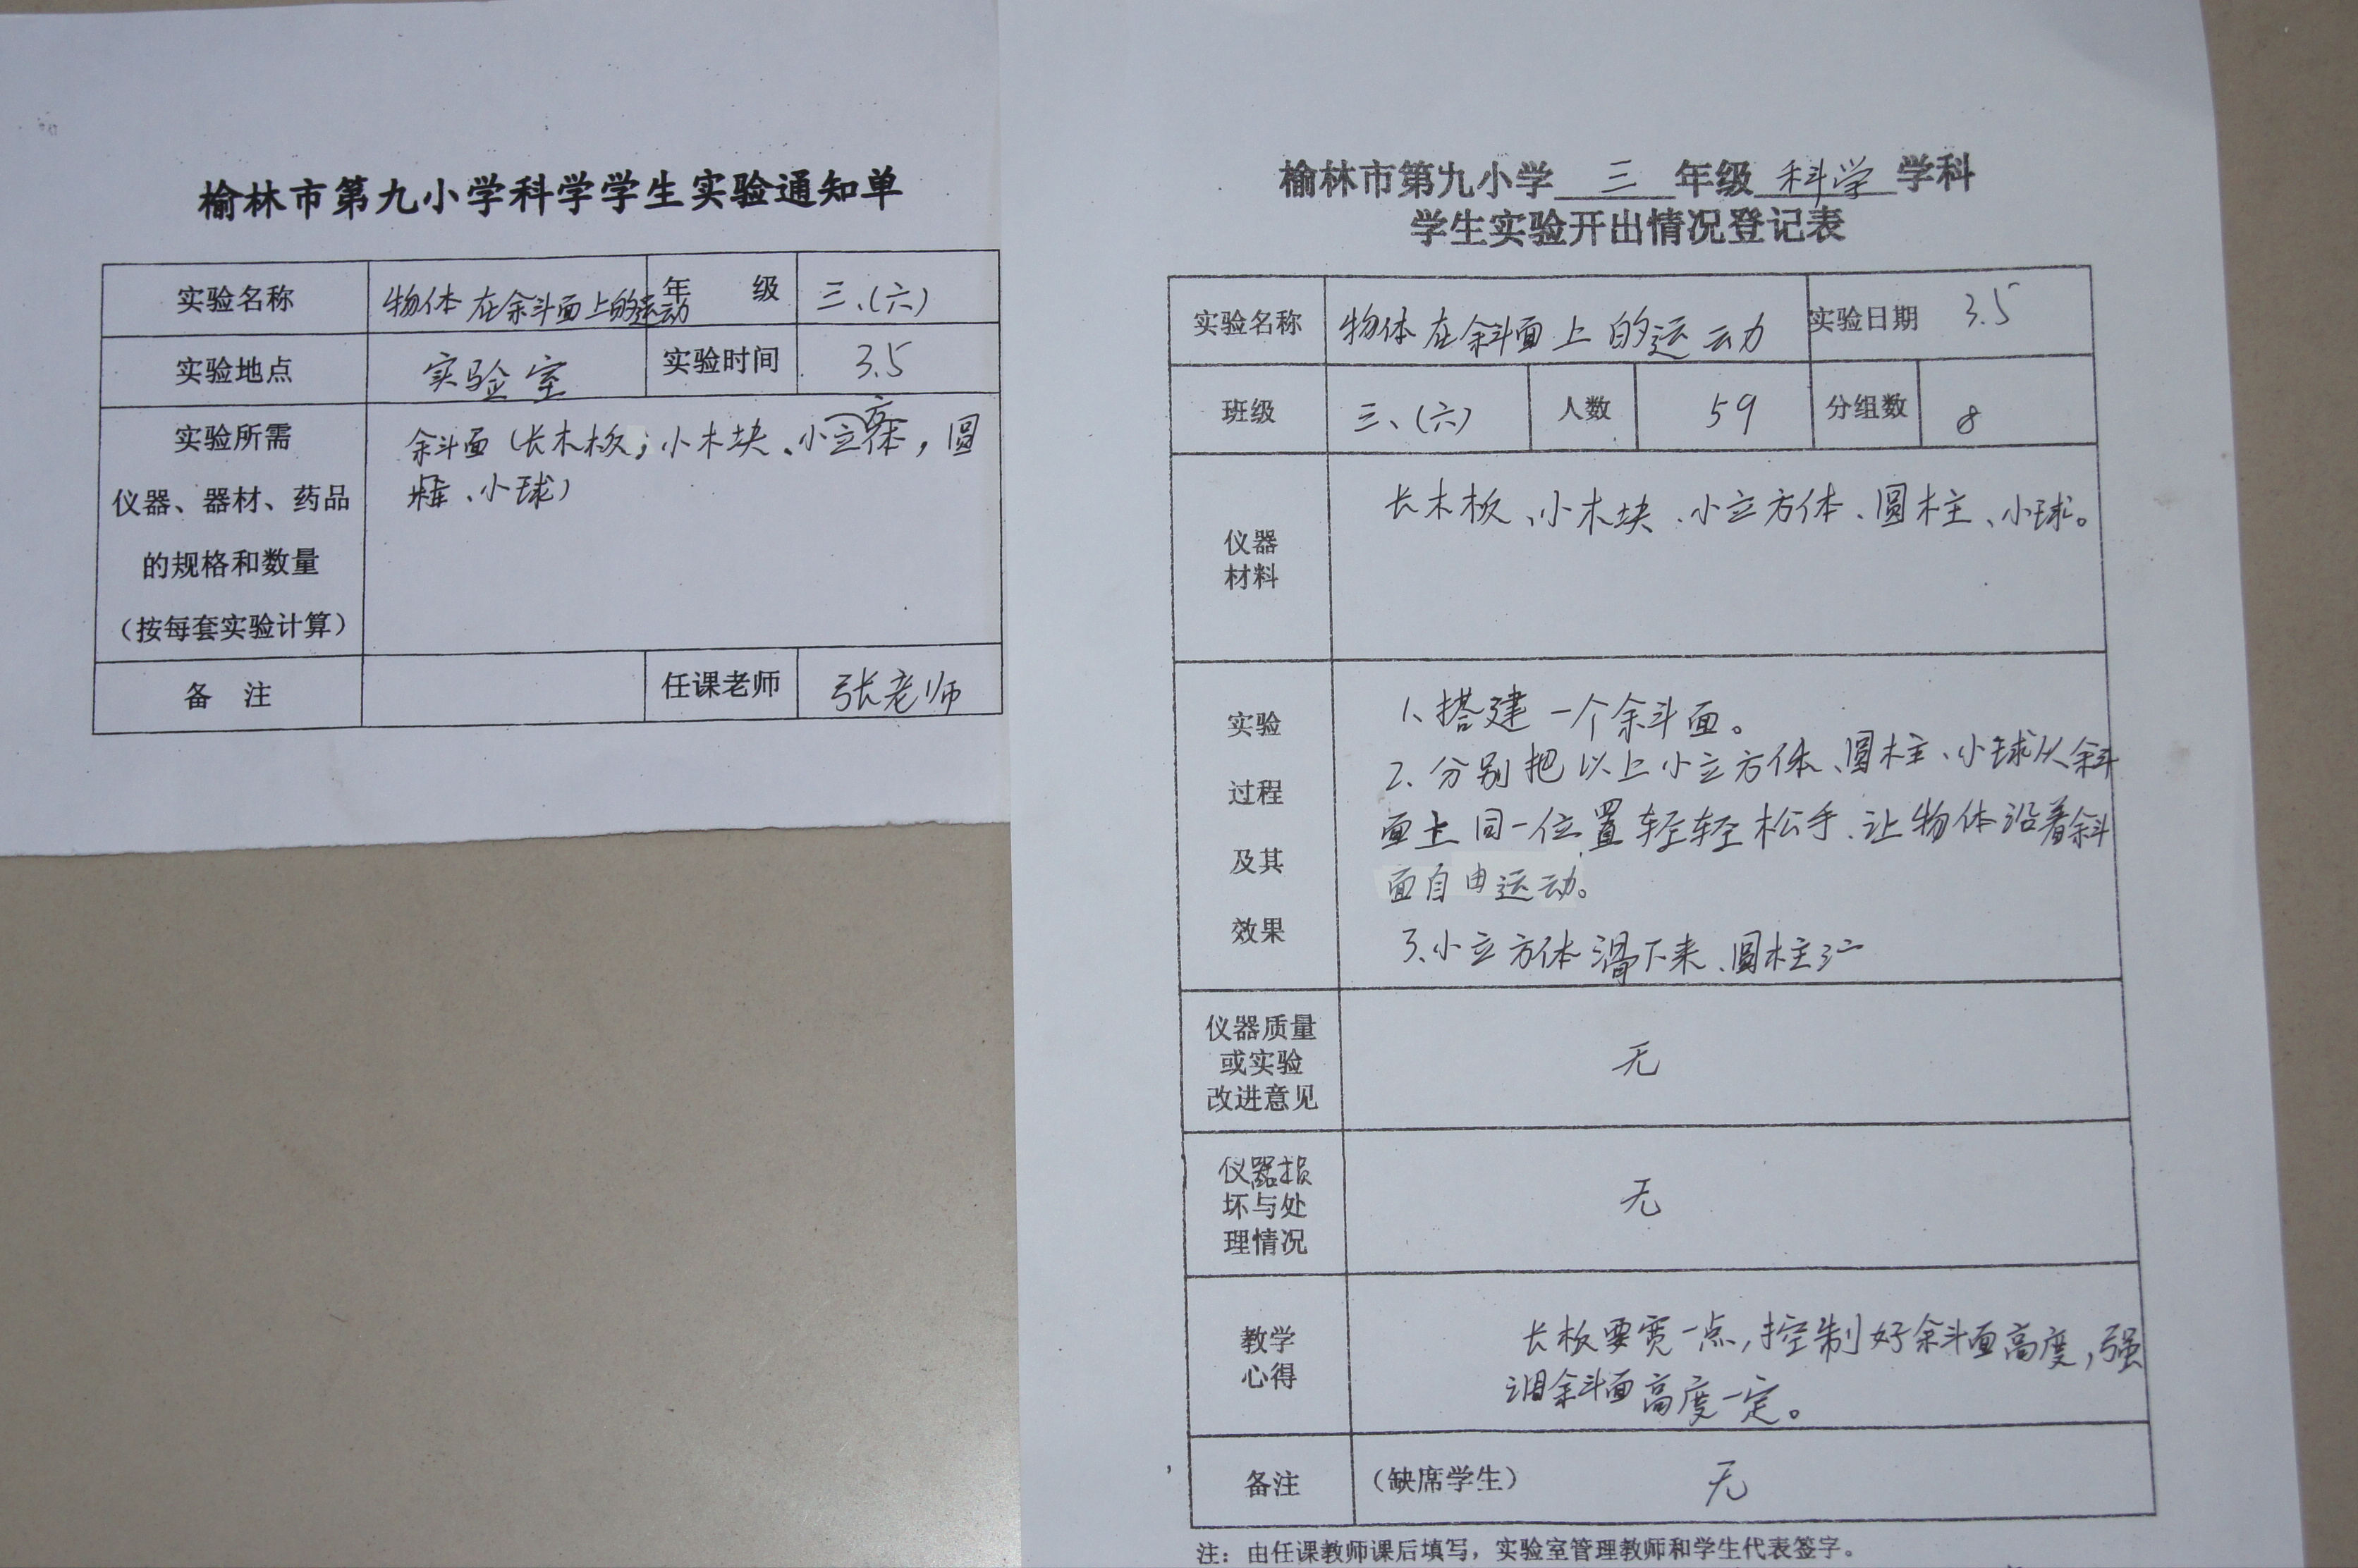 榆林市第九小学科学学生实验通知单
实验名称 物体在斜面上的运动 年 级 三、(六)
实验地点 实验室 实验时间 3.5
实验所需
仪器、器材、药品
的规格和数量
(按每套实验计算)
斜面(长木板,小木块、小立方体,圆
小球)
备 注 任课老师 张老师
榆林市第九小学 三 年级 科学 学科
学生实验开出情况登记表
实验名称 物体在斜面上的运动 实验日期 3.5
班级 三、(六) 人数 59 分组数 8
仪器
材料
长木板、小木块、小立方体、圆柱、小球。
实验
过程
及其
效果
1、搭建一个斜面。
2、分别把以上小立方体、圆柱、小球从斜
面上同一位置轻轻松手、让物体沿着斜
面自由运动。
3、小立方体滑下来、圆柱
仪器质量
或实验
改进意见
无
仪器损
坏与处
理情况
无
教学
心得
长板要宽一点,控制好斜面高度,强
调斜面高度一定。
备注 (缺席学生) 无
注:由任课教师课后填写,实验室管理教师和学生代表签字。